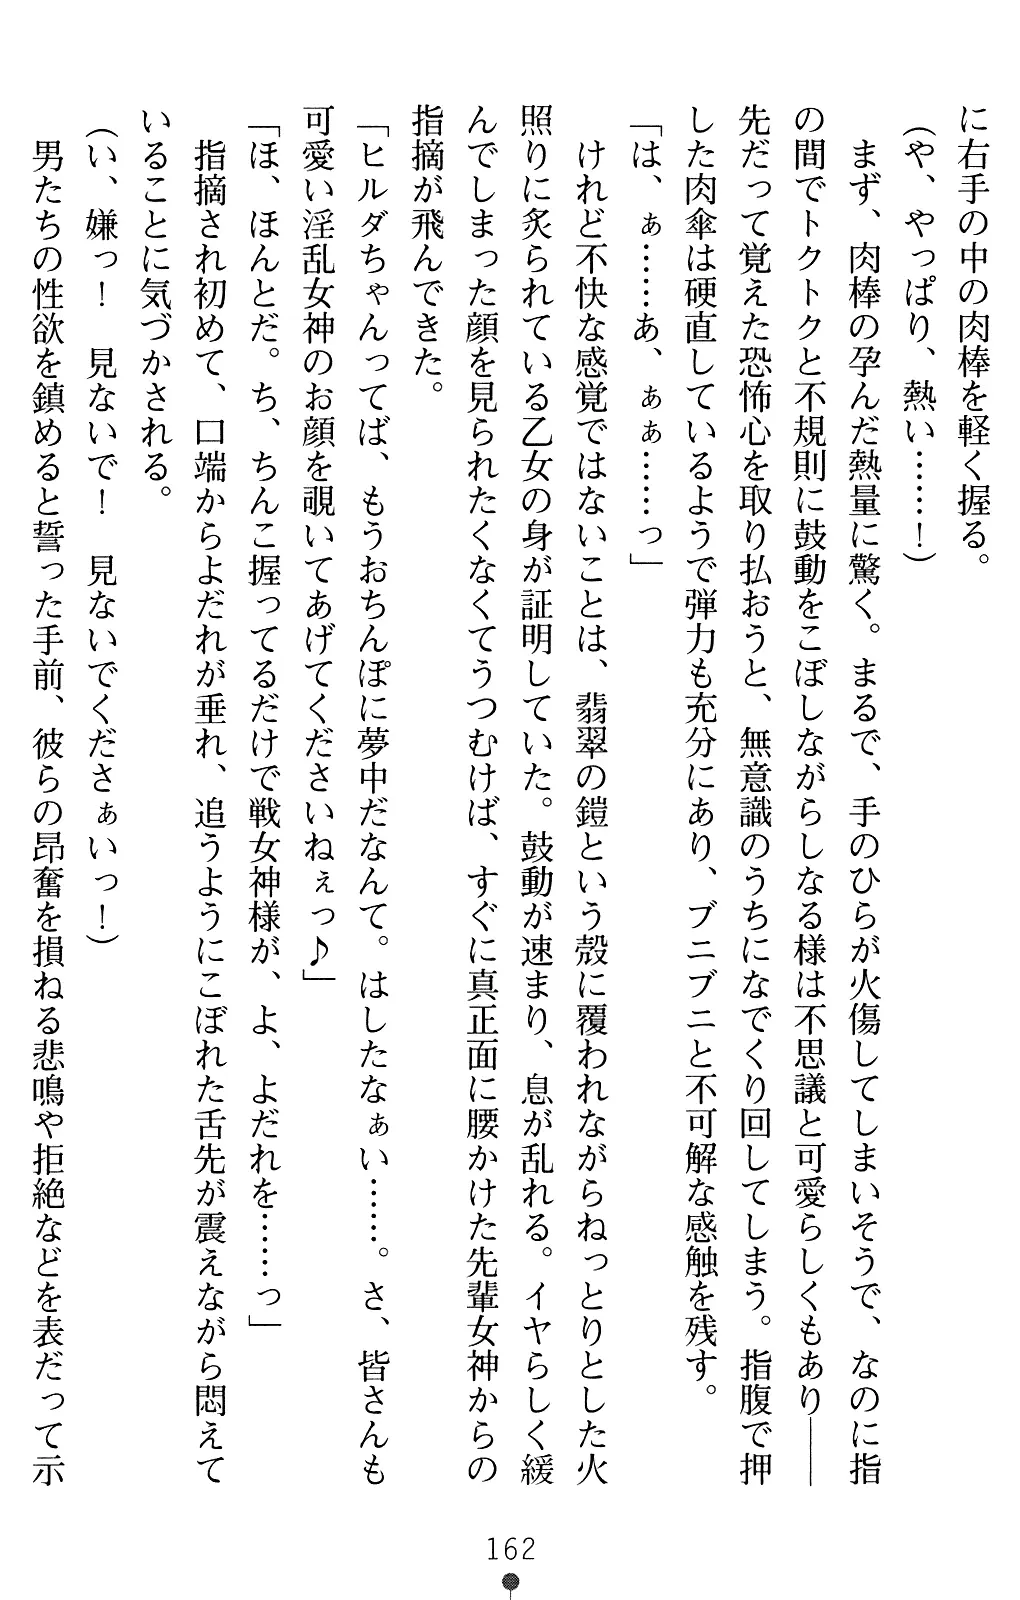 に右手の中の肉棒を軽く握る。
（や、やっぱり、熱い……！）
まず、肉棒の孕んだ熱量に驚く。まるで、手のひらが火傷してしまいそうで、なのに指
の間でトクトクと不規則に鼓動をこぼしながらしなる様は不思議と可愛らしくもあり――
先だって覚えた恐怖心を取り払おうと、無意識のうちになでくり回してしまう。指腹で押
した肉傘は硬直しているようで弾力も充分にあり、ブニブニと不可解な感触を残す。
「は、ぁ……あ、ぁぁ……っ」
けれど不快な感覚ではないことは、翡翠の鎧という殻に覆われながらねっとりとした火
照りに炙られている乙女の身が証明していた。鼓動が速まり、息が乱れる。イヤらしく緩
んでしまった顔を見られたくなくてうつむけば、すぐに真正面に腰かけた先輩女神からの
指摘が飛んできた。
「ヒルダちゃんってば、もうおちんぽに夢中だなんて。はしたなぁい……。さ、皆さんも
可愛い淫乱女神のお顔を覗いてあげてくださいねぇっ♪」
「ほ、ほんとだ。ち、ちんこ握ってるだけで戦女神様が、よ、よだれを……っ」
指摘され初めて、口端からよだれが垂れ、追うようにこぼれた舌先が震えながら悶えて
いることに気づかされる。
（い、嫌っ！　見ないで！　見ないでくださぁいっ！）
男たちの性欲を鎮めると誓った手前、彼らの昂奮を損ねる悲鳴や拒絶などを表だって示
162